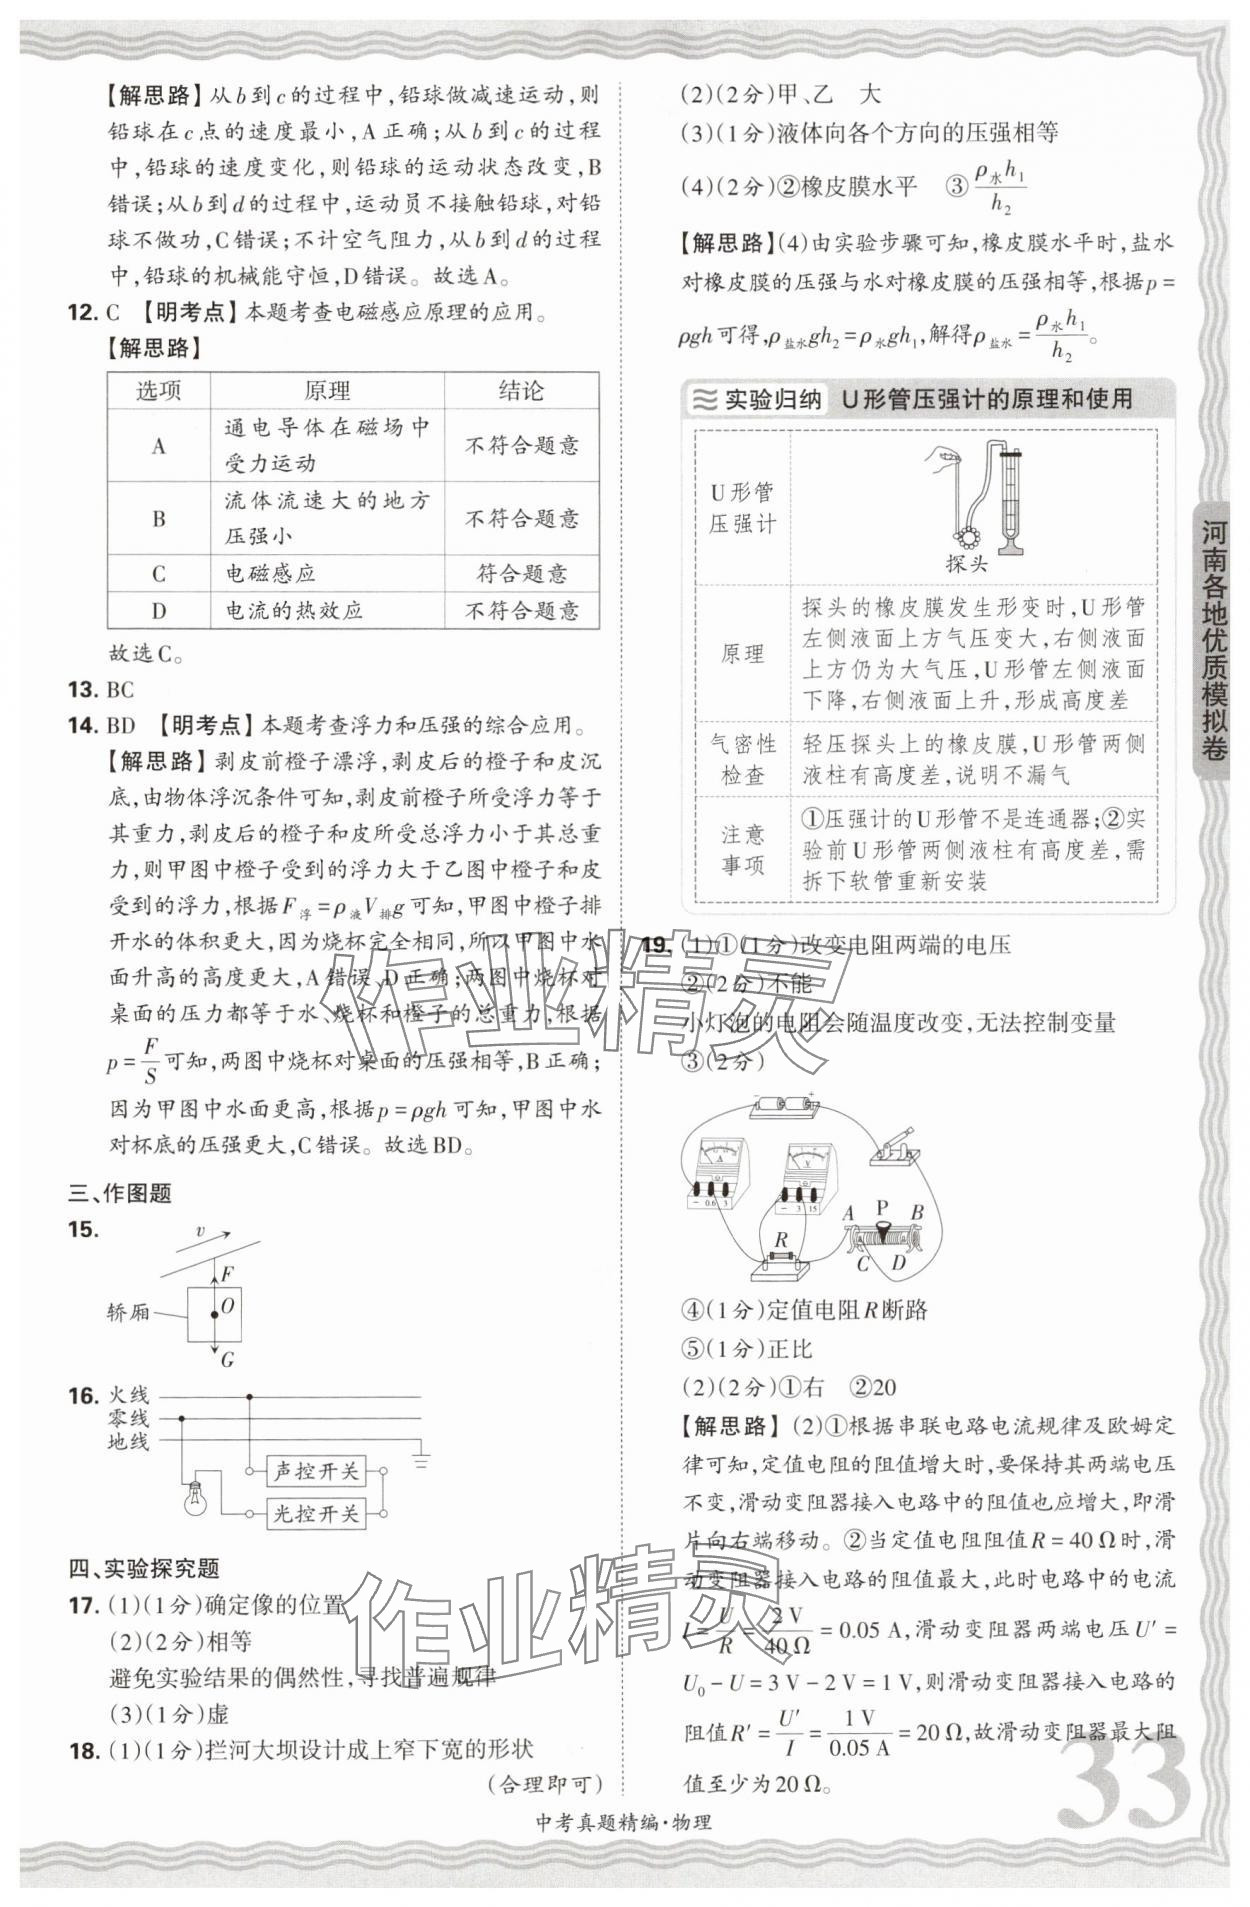 【解思路】从b到c的过程中,铅球做减速运动,则
铅球在c点的速度最小,A正确;从b到c的过程
中,铅球的速度变化,则铅球的运动状态改变,B
错误;从b到d的过程中,运动员不接触铅球,对铅
球不做功,C错误;不计空气阻力,从b到d的过程
中,铅球的机械能守恒,D错误。故选A。
12. C 【明考点】本题考查电磁感应原理的应用。
【解思路】
选项 原理 结论
A 通电导体在磁场中受力运动 不符合题意
B 流体流速大的地方压强小 不符合题意
C 电磁感应 符合题意
D 电流的热效应 不符合题意
故选C。
13. BC
14. BD 【明考点】本题考查浮力和压强的综合应用。
【解思路】剥皮前橙子漂浮,剥皮后的橙子和皮沉
底,由物体浮沉条件可知,剥皮前橙子所受浮力等于
其重力,剥皮后的橙子和皮所受总浮力小于其总重
力,则甲图中橙子受到的浮力大于乙图中橙子和皮
受到的浮力,根据F浮=ρ液V排g可知,甲图中橙子排
开水的体积更大,因为烧杯完全相同,所以甲图中水
面升高的高度更大,A错误、D正确;两图中烧杯对
桌面的压力都等于水、烧杯和橙子的总重力,根据
p=F/S可知,两图中烧杯对桌面的压强相等,B正确;
因为甲图中水面更高,根据p=ρgh可知,甲图中水
对杯底的压强更大,C错误。故选BD。
三、作图题
15.
v
F
轿厢
O
G
16. 火线
零线
地线
声控开关
光控开关
四、实验探究题
17. (1)(1分)确定像的位置
(2)(2分)相等
避免实验结果的偶然性,寻找普遍规律
(3)(1分)虚
18. (1)(1分)拦河大坝设计成上窄下宽的形状
(合理即可)
(2)(2分)甲、乙 大
(3)(1分)液体向各个方向的压强相等
(4)(2分)②橡皮膜水平 ③ρ水h1/h2
【解思路】(4)由实验步骤可知,橡皮膜水平时,盐水
对橡皮膜的压强与水对橡皮膜的压强相等,根据p=
ρgh可得,ρ盐水gh2=ρ水gh1,解得ρ盐水=ρ水h1/h2。
实验归纳 U形管压强计的原理和使用
U形管压强计 探头
原理 探头的橡皮膜发生形变时,U形管
左侧液面上方气压变大,右侧液面
上方仍为大气压,U形管左侧液面
下降,右侧液面上升,形成高度差
气密性检查 轻压探头上的橡皮膜,U形管两侧
液柱有高度差,说明不漏气
注意事项 ①压强计的U形管不是连通器;②实
验前U形管两侧液柱有高度差,需
拆下软管重新安装
19. (1)①(1分)改变电阻两端的电压
②(2分)不能
小灯泡的电阻会随温度改变,无法控制变量
③(2分)
- +
A
V
- 0.6 3
- 3 15
R
A P B
C D
④(1分)定值电阻R断路
⑤(1分)正比
(2)(2分)①右 ②20
【解思路】(2)①根据串联电路电流规律及欧姆定
律可知,定值电阻的阻值增大时,要保持其两端电压
不变,滑动变阻器接入电路中的阻值也应增大,即滑
片向右端移动。②当定值电阻阻值R=40 Ω时,滑
动变阻器接入电路的阻值最大,此时电路中的电流
I=U/R=2 V/40 Ω=0.05 A,滑动变阻器两端电压U'=
U0-U=3 V-2 V=1 V,则滑动变阻器接入电路的
阻值R'=U'/I=1 V/0.05 A=20 Ω,故滑动变阻器最大阻
值至少为20 Ω。
河南各地优质模拟卷
中考真题精编·物理
33
作业精灵
作业精灵